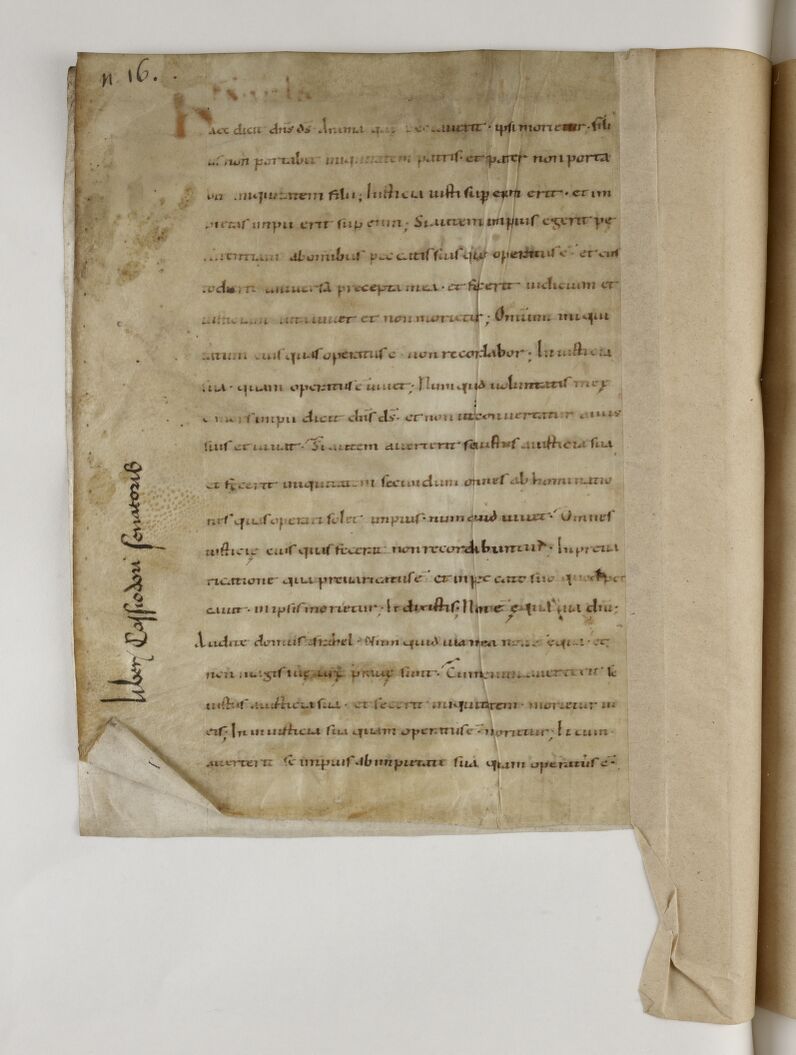 n. 16.
Haec dicit dñs ds Anima que peccauerit · ipsa morietur · fili
us non portabit iniquitatem patris · et pater non porta
bit iniquitatem filii; Iusticia iusti sup eum erit · et im
pietas impii erit sup eum; Si autem impius egerit pę
nitentiam ab omnibus peccatis suis quę operatus ē · et cus
todierit uniuersa precepta mea · et fecerit iudicium et
iusticiam uita uiuet et non morietur; Omnium iniqui
tatum eius quas operatus ē non recordabor; In iusticia
sua · quam operatus ē uiuet; Numquid uoluntatis meę
ē mors impii dicit dñs ds · et non ut conuertatur a uiis
suis et uiuat · Si autem auerterit se iustus a iusticia sua
et fecerit iniquitatem secundum omnes abhominatio
nes quas operari solet impius · numquid uiuet · Omnes
iusticię eius quas fecerit non recordabuntur · In preua
ricatione qua preuaricatus ē et in peccato suo quod pec
cauit · in ipsis morietur; Et dixistis; Non ē ęqua uia dñi;
Audite domus israhel · Numquid uia mea non ē equa · et
non magis uię uestrę prauę sunt · Cum enim auerterit se
iustus a iusticia sua · et fecerit iniquitatem · morietur in
eis; In iniusticia sua quam operatus ē morietur; Et cum
auerterit se impius ab impietate sua quam operatus ē ·
liber Cassiodori senatoris